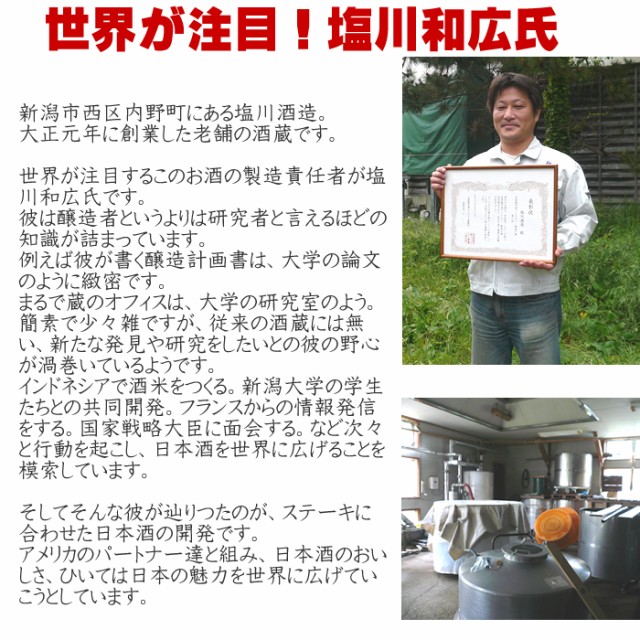 世界が注目！塩川和広氏
新潟市西区内野町にある塩川酒造。
大正元年に創業した老舗の酒蔵です。
世界が注目するこのお酒の製造責任者が塩
川和広氏です。
彼は醸造者というよりは研究者と言えるほどの
知識が詰まっています。
例えば彼が書く醸造計画書は、大学の論文
のように緻密です。
まるで蔵のオフィスは、大学の研究室のよう。
簡素で少々雑ですが、従来の酒蔵には無
い、新たな発見や研究をしたいとの彼の野心
が渦巻いているようです。
インドネシアで酒米をつくる。新潟大学の学生
たちとの共同開発。フランスからの情報発信
をする。国家戦略大臣に面会する。など次々
と行動を起こし、日本酒を世界に広げることを
模索しています。
そしてそんな彼が辿りつたのが、ステーキに
合わせた日本酒の開発です。
アメリカのパートナー達と組み、日本酒のおい
しさ、ひいては日本の魅力を世界に広げてい
こうとしています。